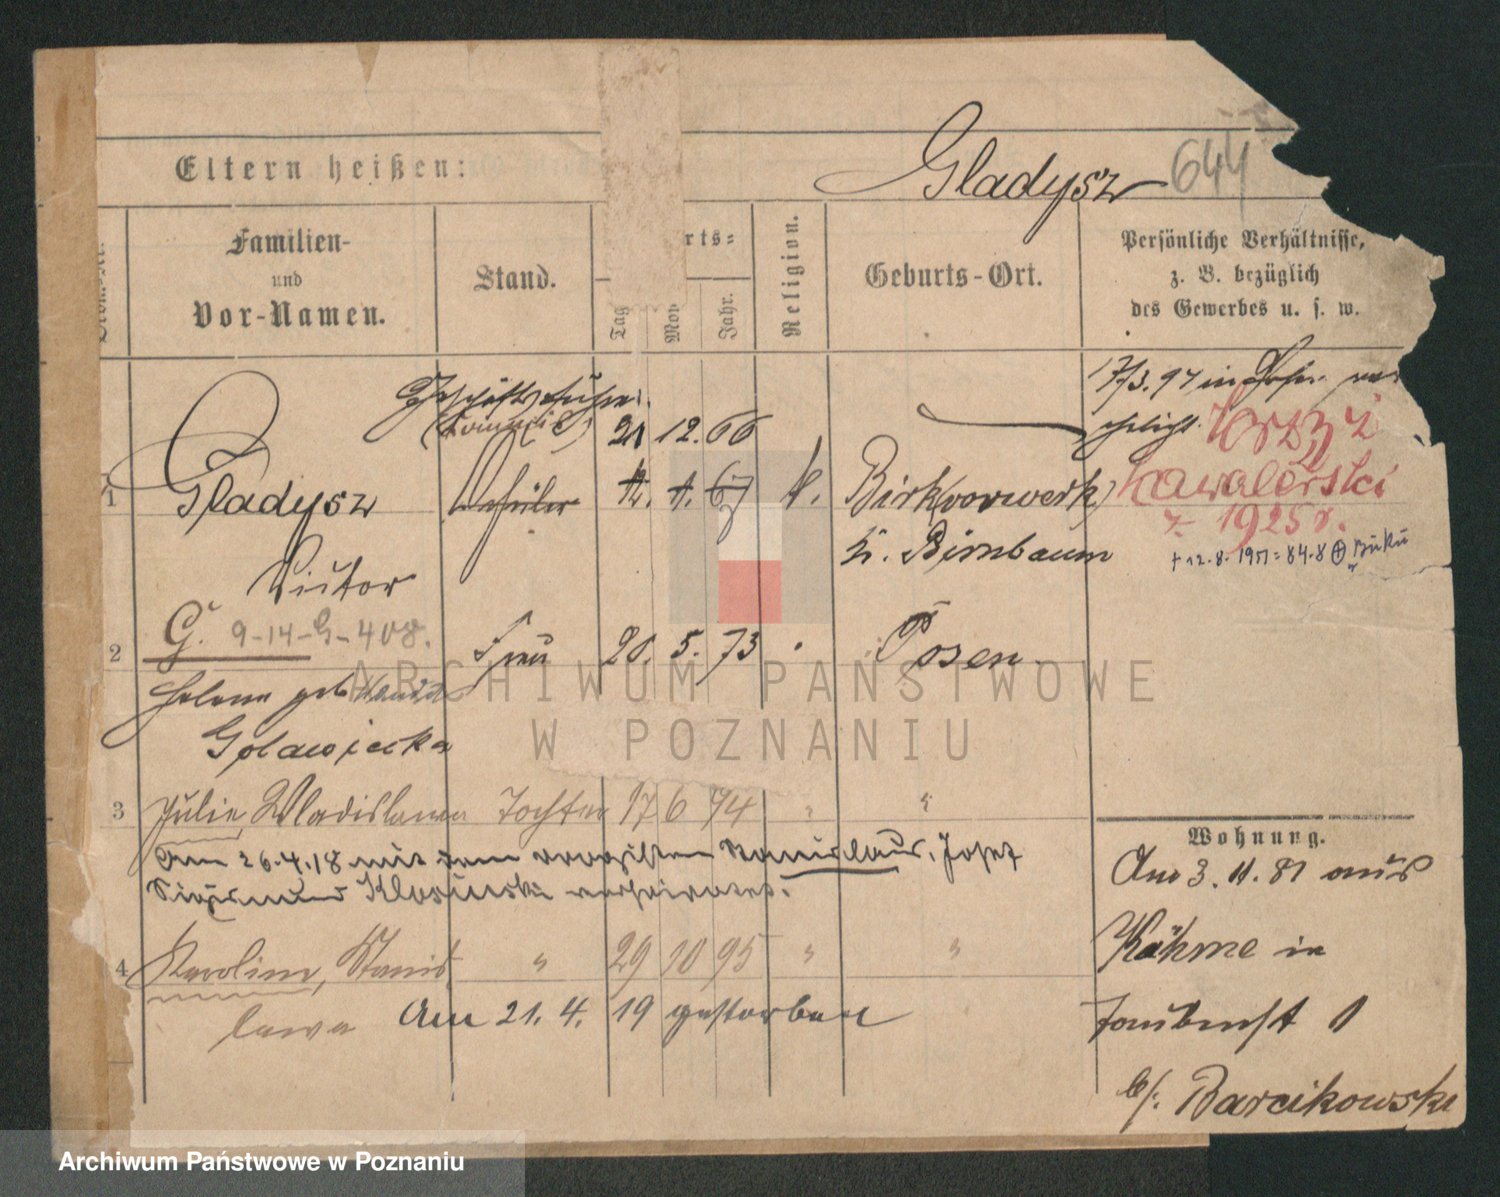 Eltern heißen:
Gladysz 644
Familien-
und
Vor-Namen.
Stand.
rts=
Tag
Mon
Jahr.
Religion.
Geburts-Ort.
Persönliche Verhältnisse,
z. B. bezüglich
des Gewerbes u. s. w.
17/3.97 in Posen ver
ehelicht.
Geschäftsführer.
(Commis)
21 12. 66
1
Gladysz
Schüler
12. 1. 67
k.
Birk(vorwerk)
K. Birnbaum
Krzyż
Kawalerski
1925 r.
+ 12.8.1951 = 84.8 Buku
Victor
G. 9-14-G-408.
2
Frau
20. 5. 73
Posen
Helene geb Wanda
Golawiecka
3
Julie, Wladislawa Tochter 17 6 94 " "
Am 26.4.18 mit dem Stanislaus, Josef
Sigismund Klosinski verheiratet.
4
Karoline, Stanis " 29 10 95 " "
lawa
Am 21. 4. 19 gestorben
Wohnung.
Am 3. 11. 81 aus
Kähme in
Taubenst 1
b/: Barcikowski
ARCHIWUM PAŃSTWOWE
W POZNANIU
Archiwum Państwowe w Poznaniu